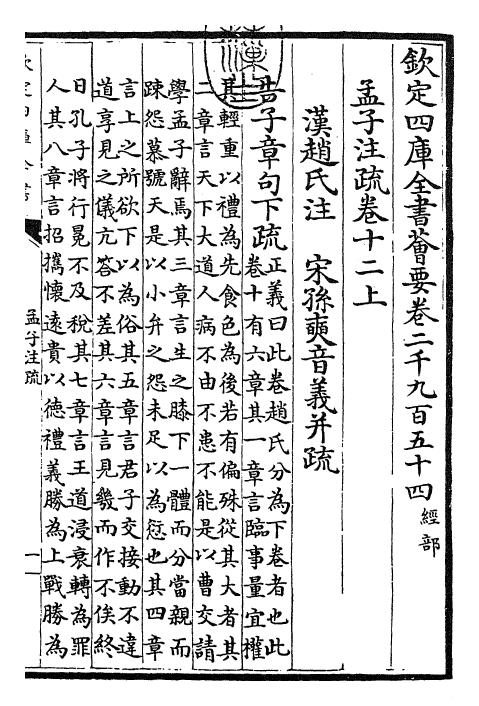 欽定四庫全書薈要卷二千九百五十四 經部
孟子注疏卷十二上
漢趙氏注 宋孫奭音義并疏
告子章句下疏
正義曰此卷趙氏分為下卷者也此
卷十有六章其一章言臨事量宜權
其輕重以禮為先食色為後若有偏殊從其大者其
二章言天下大道人病不由不患不能是以曹交請
學孟子辭焉其三章言生之膝下一體而分當親而
疎怨慕號天是以小弁之怨未足以為愆也其四章
言上之所欲下以為俗其五章言君子交接動不違
道享見之儀亢答不差其六章言見幾而作不俟終
日孔子將行冕不及稅其七章言王道浸衰轉為罪
人其八章言招攜懷遠貴以德禮義勝為上戰勝為
孟子注疏
一